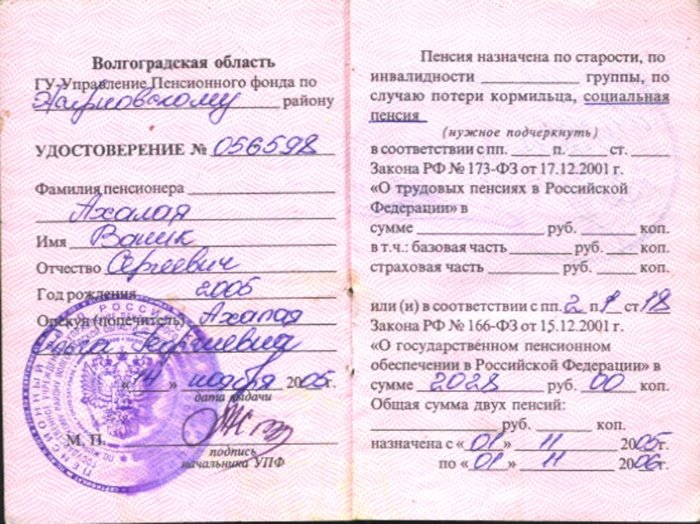 Волгоградская область
ГУ-Управление Пенсионного фонда по
району
УДОСТОВЕРЕНИЕ № 056598
Фамилия пенсионера
Ахалая
Имя Ваник
Отчество Сергеевич
Год рождения 2005
Опекун (попечитель) Ахалая
«14» ноября 2005г.
дата выдачи
М. П.
подпись
начальника УПФ
Пенсия назначена по старости, по
инвалидности группы, по
случаю потери кормильца, социальная
пенсия
(нужное подчеркнуть)
в соответствии с пп. п. ст.
Закона РФ № 173-ФЗ от 17.12.2001 г.
«О трудовых пенсиях в Российской
Федерации» в
сумме руб. коп.
в т.ч.: базовая часть руб. коп.
страховая часть руб. коп.
или (и) в соответствии с пп. 2 п. 1 ст. 18
Закона РФ № 166-ФЗ от 15.12.2001 г.
«О государственном пенсионном
обеспечении в Российской Федерации» в
сумме 2028 руб. 00 коп.
Общая сумма двух пенсий:
руб. коп.
назначена с «01» 11 2005г.
по «01» 11 2006г.